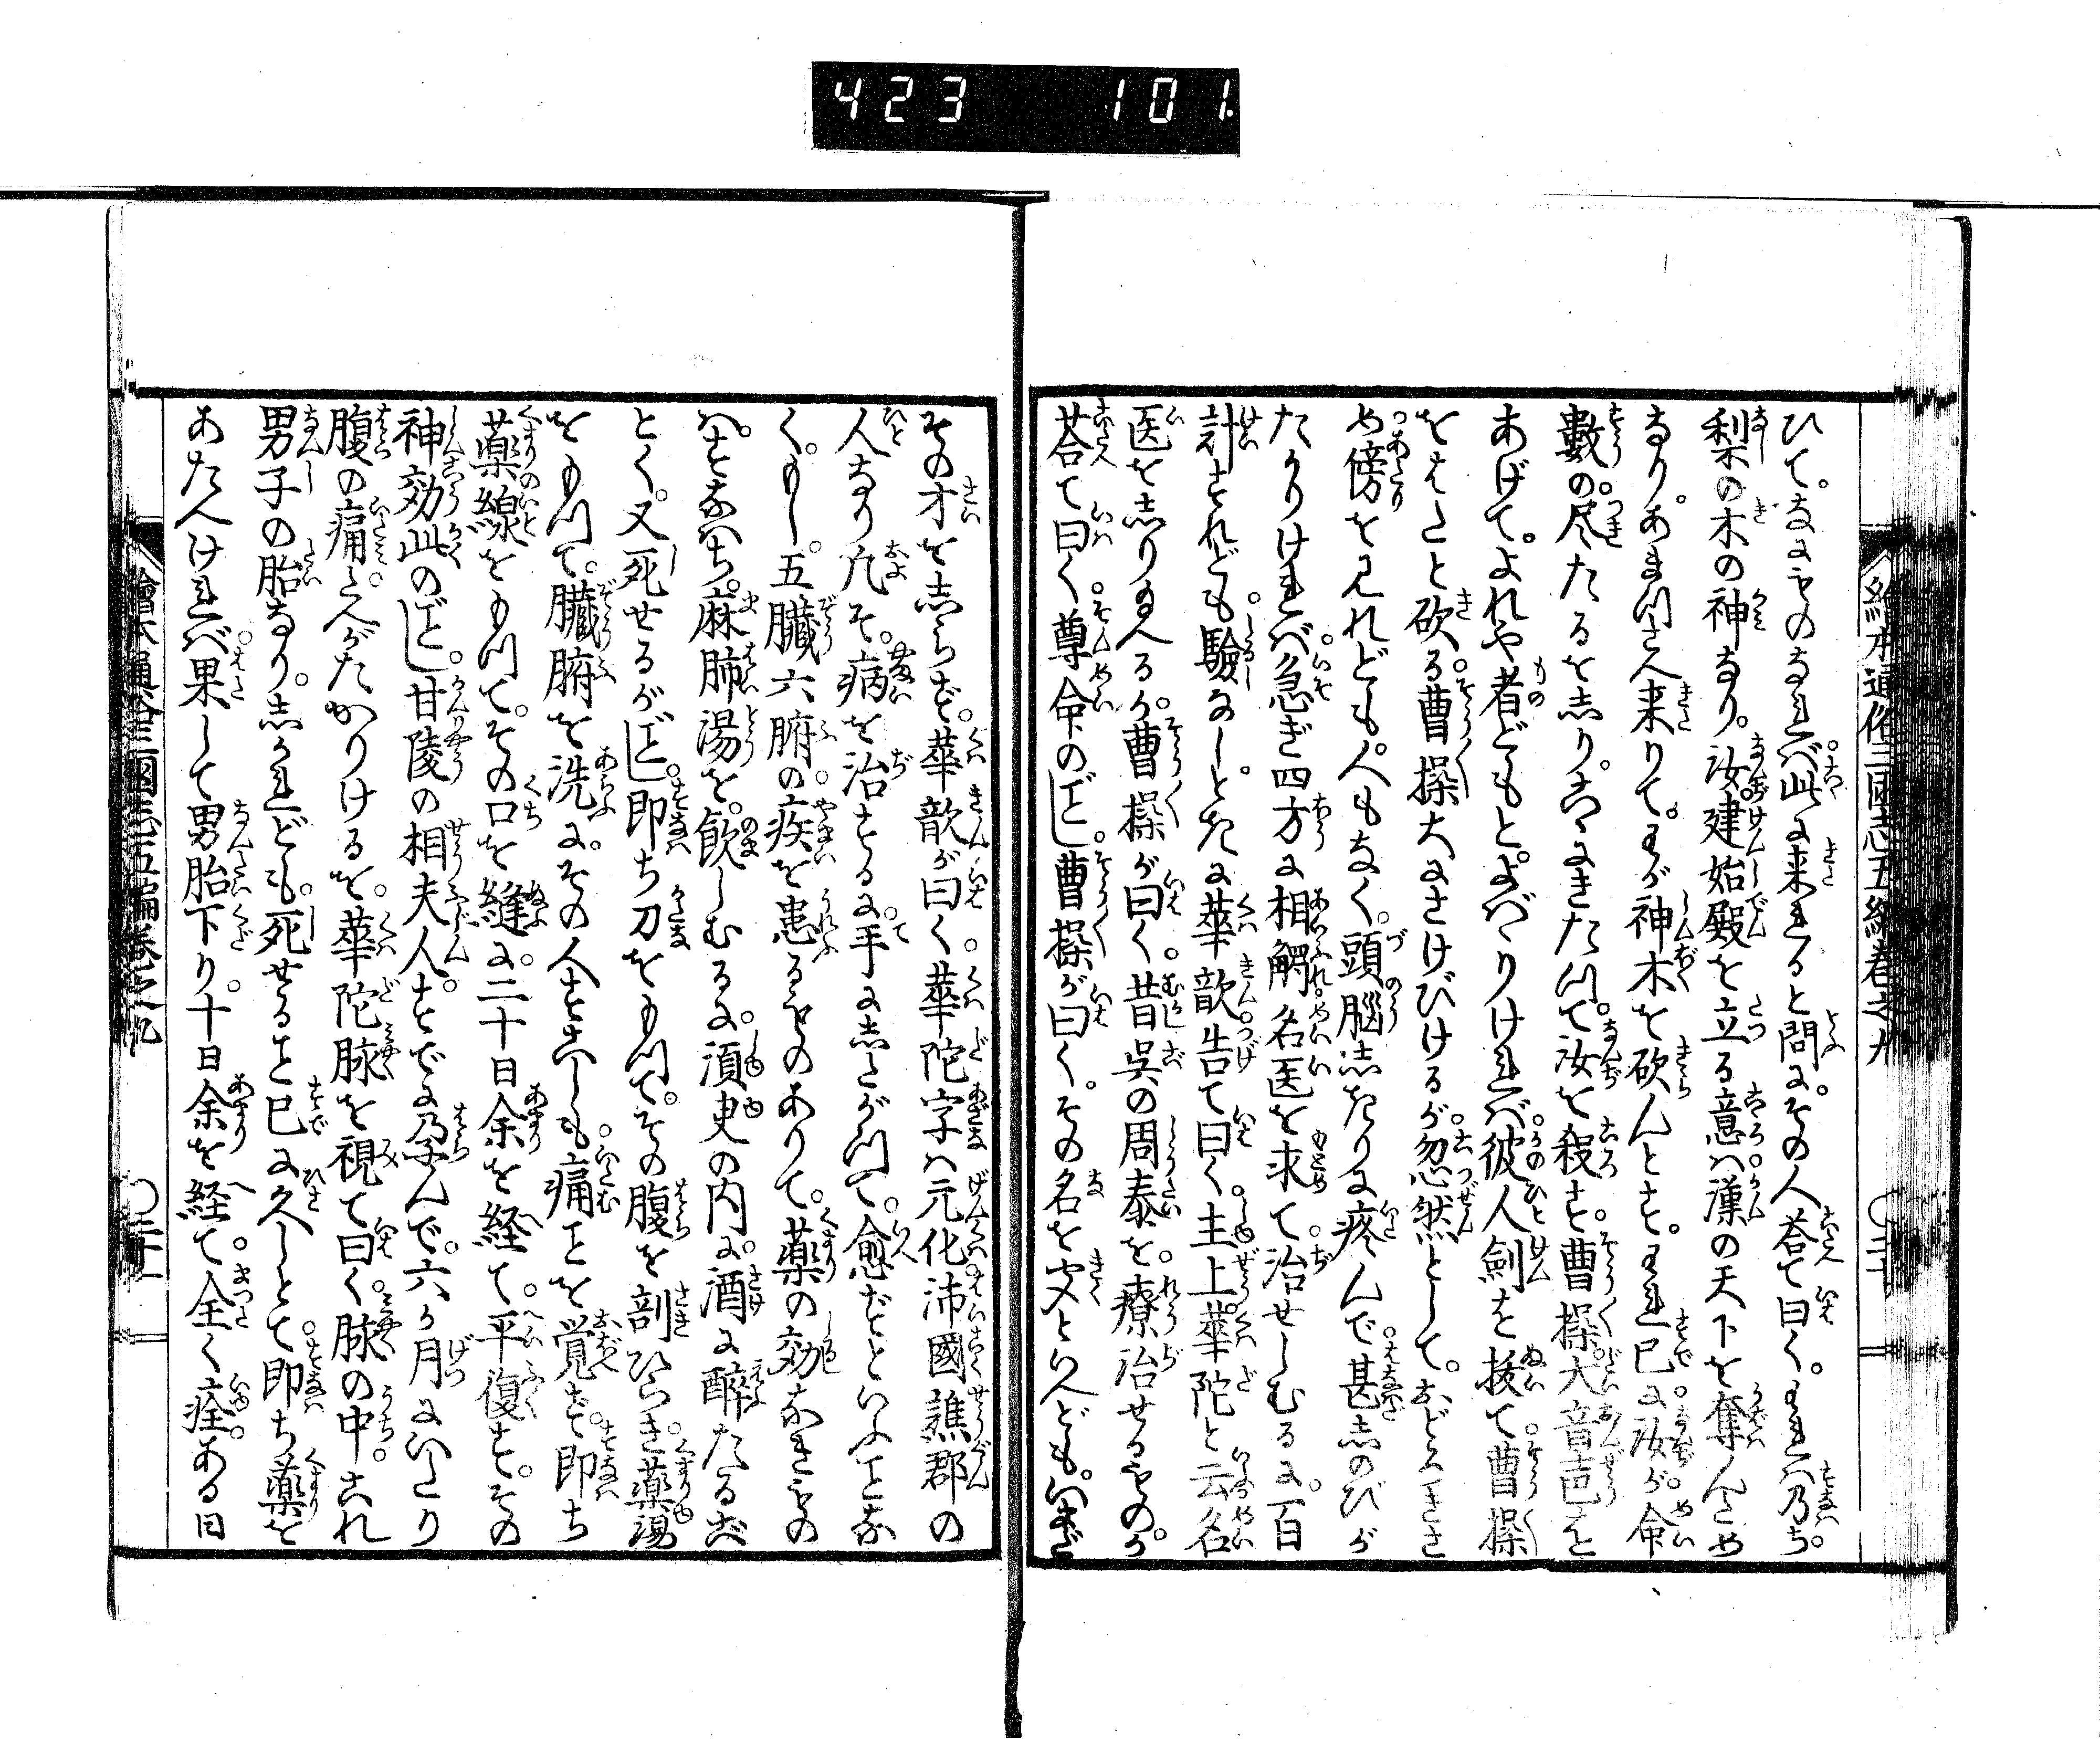 423 101
繪本通俗三國志五編卷之九
ひて。なにものなれば此に来れると問に。その人荅て曰く。われハ乃ち。
梨の木の神なり。汝建始殿を立る意ハ漢の天下を奪んため
なり。あまつさへ来りて。わが神木を砍んとす。われ已に。汝が命
數の。尽たるをしり。こゝにきたつて汝を殺す。曹操大音声を
あげて。よれや者どもとよばゝりければ。彼人剣を抜て曹操
をはたと砍る。曹操大にさけびけるが。忽然として。おどろきさ
め傍を見れども。人もなく。頭脳しきりに疼んで。甚しのびが
たかりければ。急ぎ四方に相觸。名医を求て。治せしむるに。百
計すれども。驗なし。ときに華歆。告て曰く。主上。華陀と云名
医をしり玉へるか。曹操が曰く。昔呉の周泰を。療治せるものか
荅て曰く。尊命のごとし。曹操が曰く。その名を聞といへども。いまだ
その才をしらず。華歆が曰く。華陀字ハ元化沛國譙郡の
人なり凡そ。病を治するに。手にしたがつて。愈ずといふことな
く。もし。五臟六腑の。疾を患るものありて。薬の効なきもの
ハ。すなハち。麻肺湯を。飲しむるに。須臾の内に。酒に醉たるが
ごとく。又死せるがごとし。即ち刀をもつて。その腹を剖ひらき。薬湯
をもつて。臓腑を洗に。その人すこしも。痛ことを覚ず。即ち
薬線をもつて。その口を縫に。二十日余を経て。平復す。その
神効此のごとし。甘陵の相夫人。すでに孕んで。六ヶ月にいたり
腹の痛こと。たへがたかりけるを。華陀脉を視て曰く。脉の中。これ
男子の胎なり。しかれども。死せること已に久しとて。即ち薬を
あたへければ。果して男胎下り。十日余を経て。全く痊。ある日
繪本通俗三國志五編卷之九